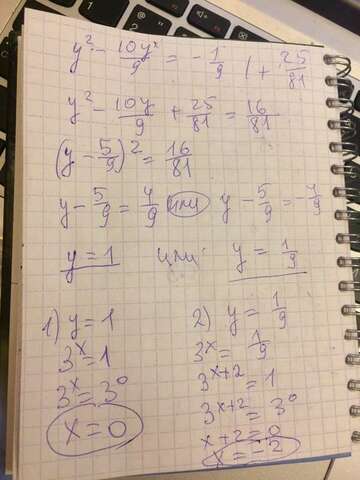 y² - 10y²/9 = - 1/9 | + 25/81
y² - 10y/9 + 25/81 = 16/81
(y - 5/9)² = 16/81
y - 5/9 = 4/9 или y - 5/9 = -4/9
y = 1 или y = 1/9
1) y = 1
3ˣ = 1
3ˣ = 3⁰
x = 0
2) y = 1/9
3ˣ = 1/9
3ˣ⁺² = 1
3ˣ⁺² = 3⁰
x + 2 = 0
x = -2